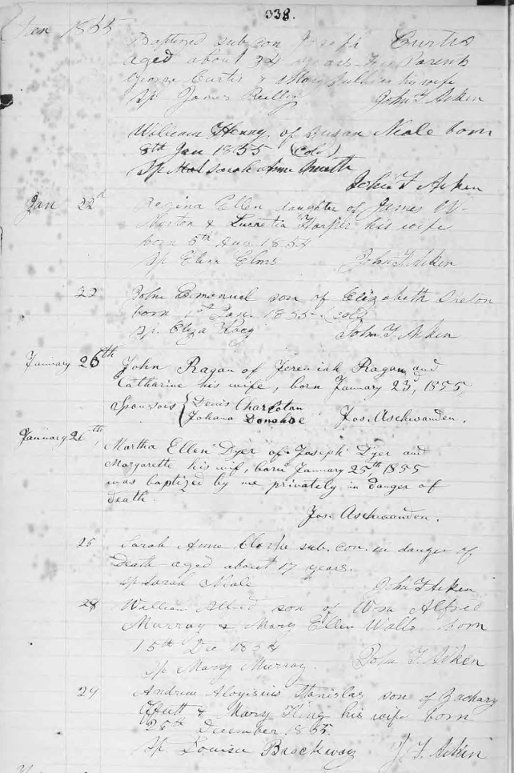 338.
Jan 1855
Baptized sub. con Joseph Curtis
aged about 32 years. Parents
George Curtis & his wife
Sp James Reilly John F Aiken
William Henry, of Susan Neale born
8th Jan 1855 (Col)
Sp Sarah Anne Smith
John F Aiken
Jan 22d Regina Ellen daughter of James W.
& Lucretia his wife
born 5th Aug 1854
Sp Ellen Elms John F Aiken
22 John Emanuel son of Elizabeth
born 1st Jan. 1855 (col)
Sp. Eliza John F. Aiken
January 26th John Ragan of Jeremiah Ragan and
Catharine his wife, born January 23, 1855
Sponsors { Denis
Johana Donahoe Jos. Aschwanden.
January 26th, Martha Ellen Dyer of Joseph Dyer and
Margarette his wife, born January 25th, 1855
was baptized by me privately in danger of
death.
Jos. Aschwanden.
26 Sarah Anne Clarke sub. con. in danger of
Death aged about 17 years.
Sp Sarah Neale John F Aiken
28 William Alfred son of Wm Alfred
Murray & Mary Ellen Walls born
15th Dec 1854
Sp Mary Murray. John F. Aiken
29 Andrew Aloysius Stanislas son of Zachary
& Mary King his wife born
25th December 1855
Sp Louisa Brockway J. F. Aiken